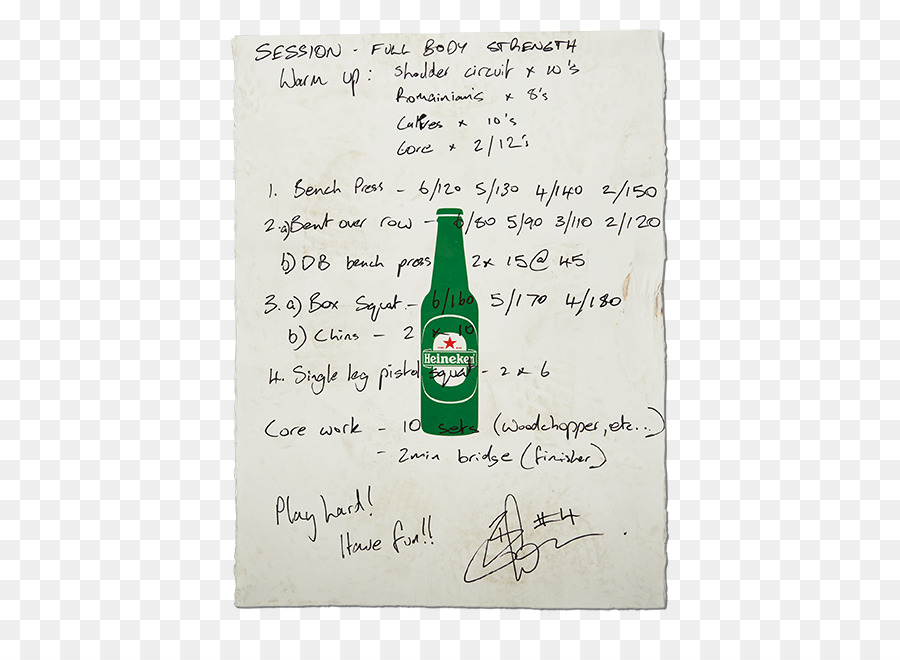 SESSION - FULL BODY STRENGTH
Warm up: Shoulder circuit x 10's
Romainian's x 8's
Calves x 10's
Core x 2/12's
1. Bench Press - 6/120 5/130 4/140 2/150
2. a) Bent over row - 6/80 5/90 3/110 2/120
b) DB bench press 2x 15@ 45
3. a) Box Squat - 6/160 5/170 4/180
b) Chins - 2 x 10
Heineken
4. Single leg pistol squat - 2 x 6
Core work - 10 sets (woodchopper, etc..)
- 2min bridge (finisher)
Play hard!
Have fun!!
#4